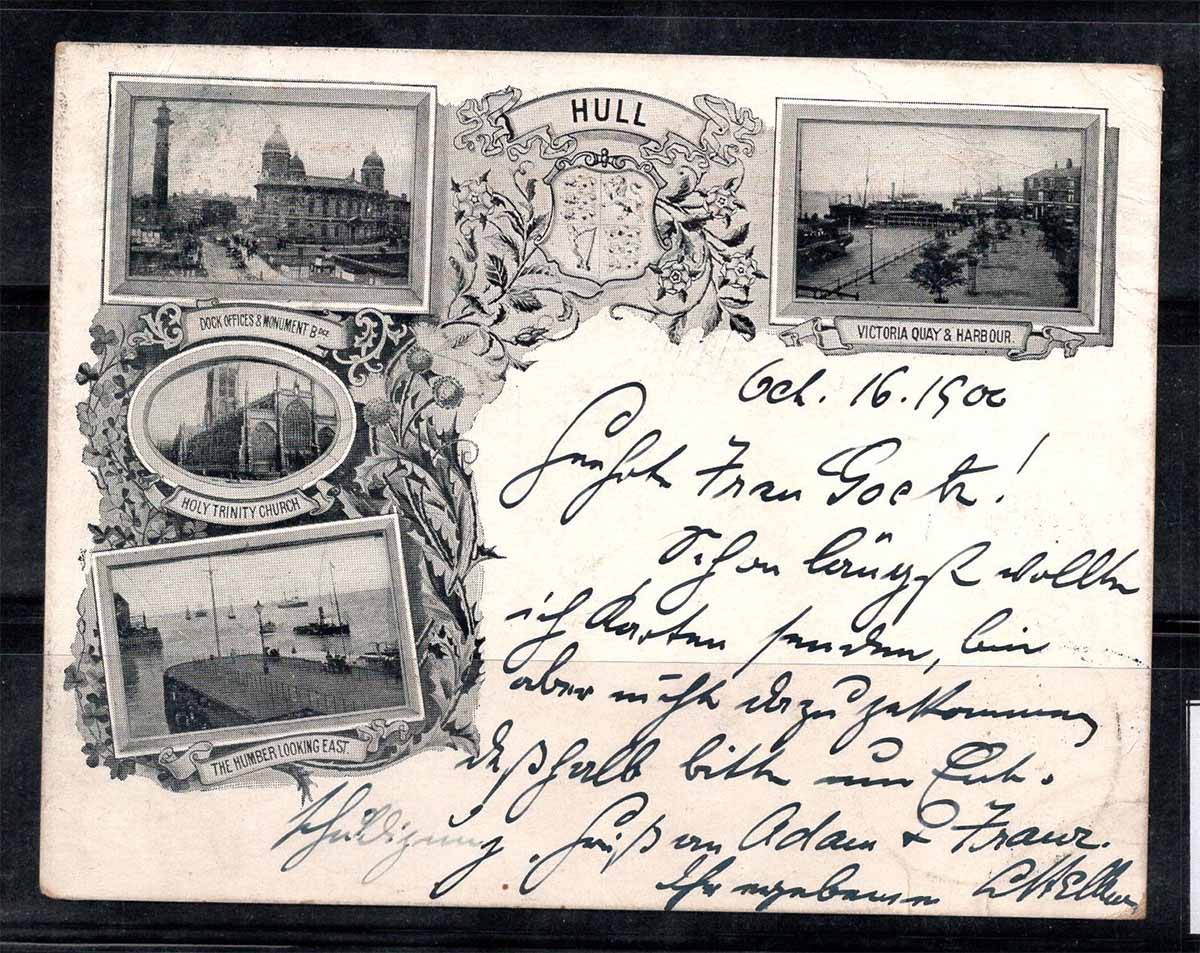 HULL
DOCK OFFICES & MONUMENT BDGE
VICTORIA QUAY & HARBOUR.
HOLY TRINITY CHURCH
THE HUMBER LOOKING EAST.
Oct. 16. 1900
Geehrte Frau Goetz!
Schon längst wollte
ich Karten senden, bin
aber nicht dazu gekommen
deßhalb bitte um Ent-
schuldigung, Gruß an Adam & Franz.
Ihr ergebener